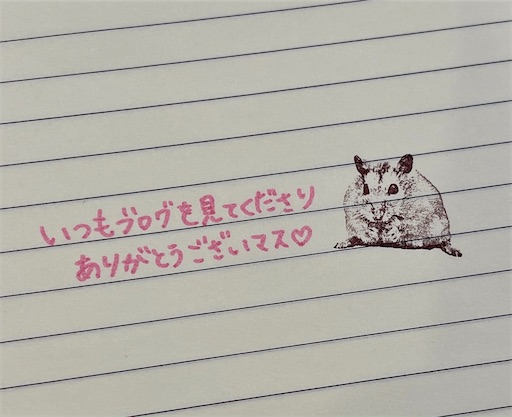 いつもブログを見てくださり
ありがとうございマス♡